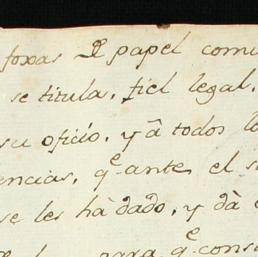 foxas De papel comu
se titula, fiel legal,
su oficio, y â todos lo
encias, q.e ante el s
se les hà dado, y dà
para q.e cons